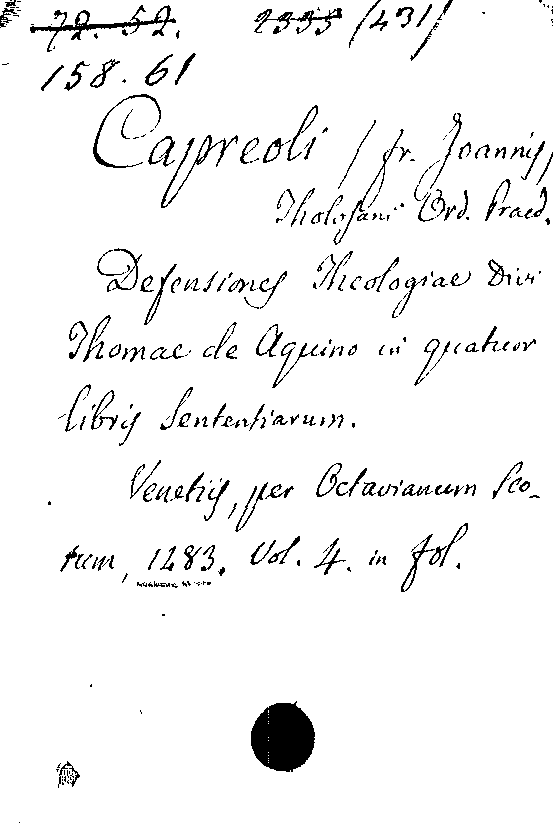 72. 52. 2335 (431)
158. 61
Capreoli / fr. Joannis,
Tholosani Ord. Praed.
Defensiones Theologiae Divi
Thomae de Aquino in quatuor
libris Sententiarum.
Venetiis, per Octavianum Sco-
tum, 1283. Vol. 4. in fol.